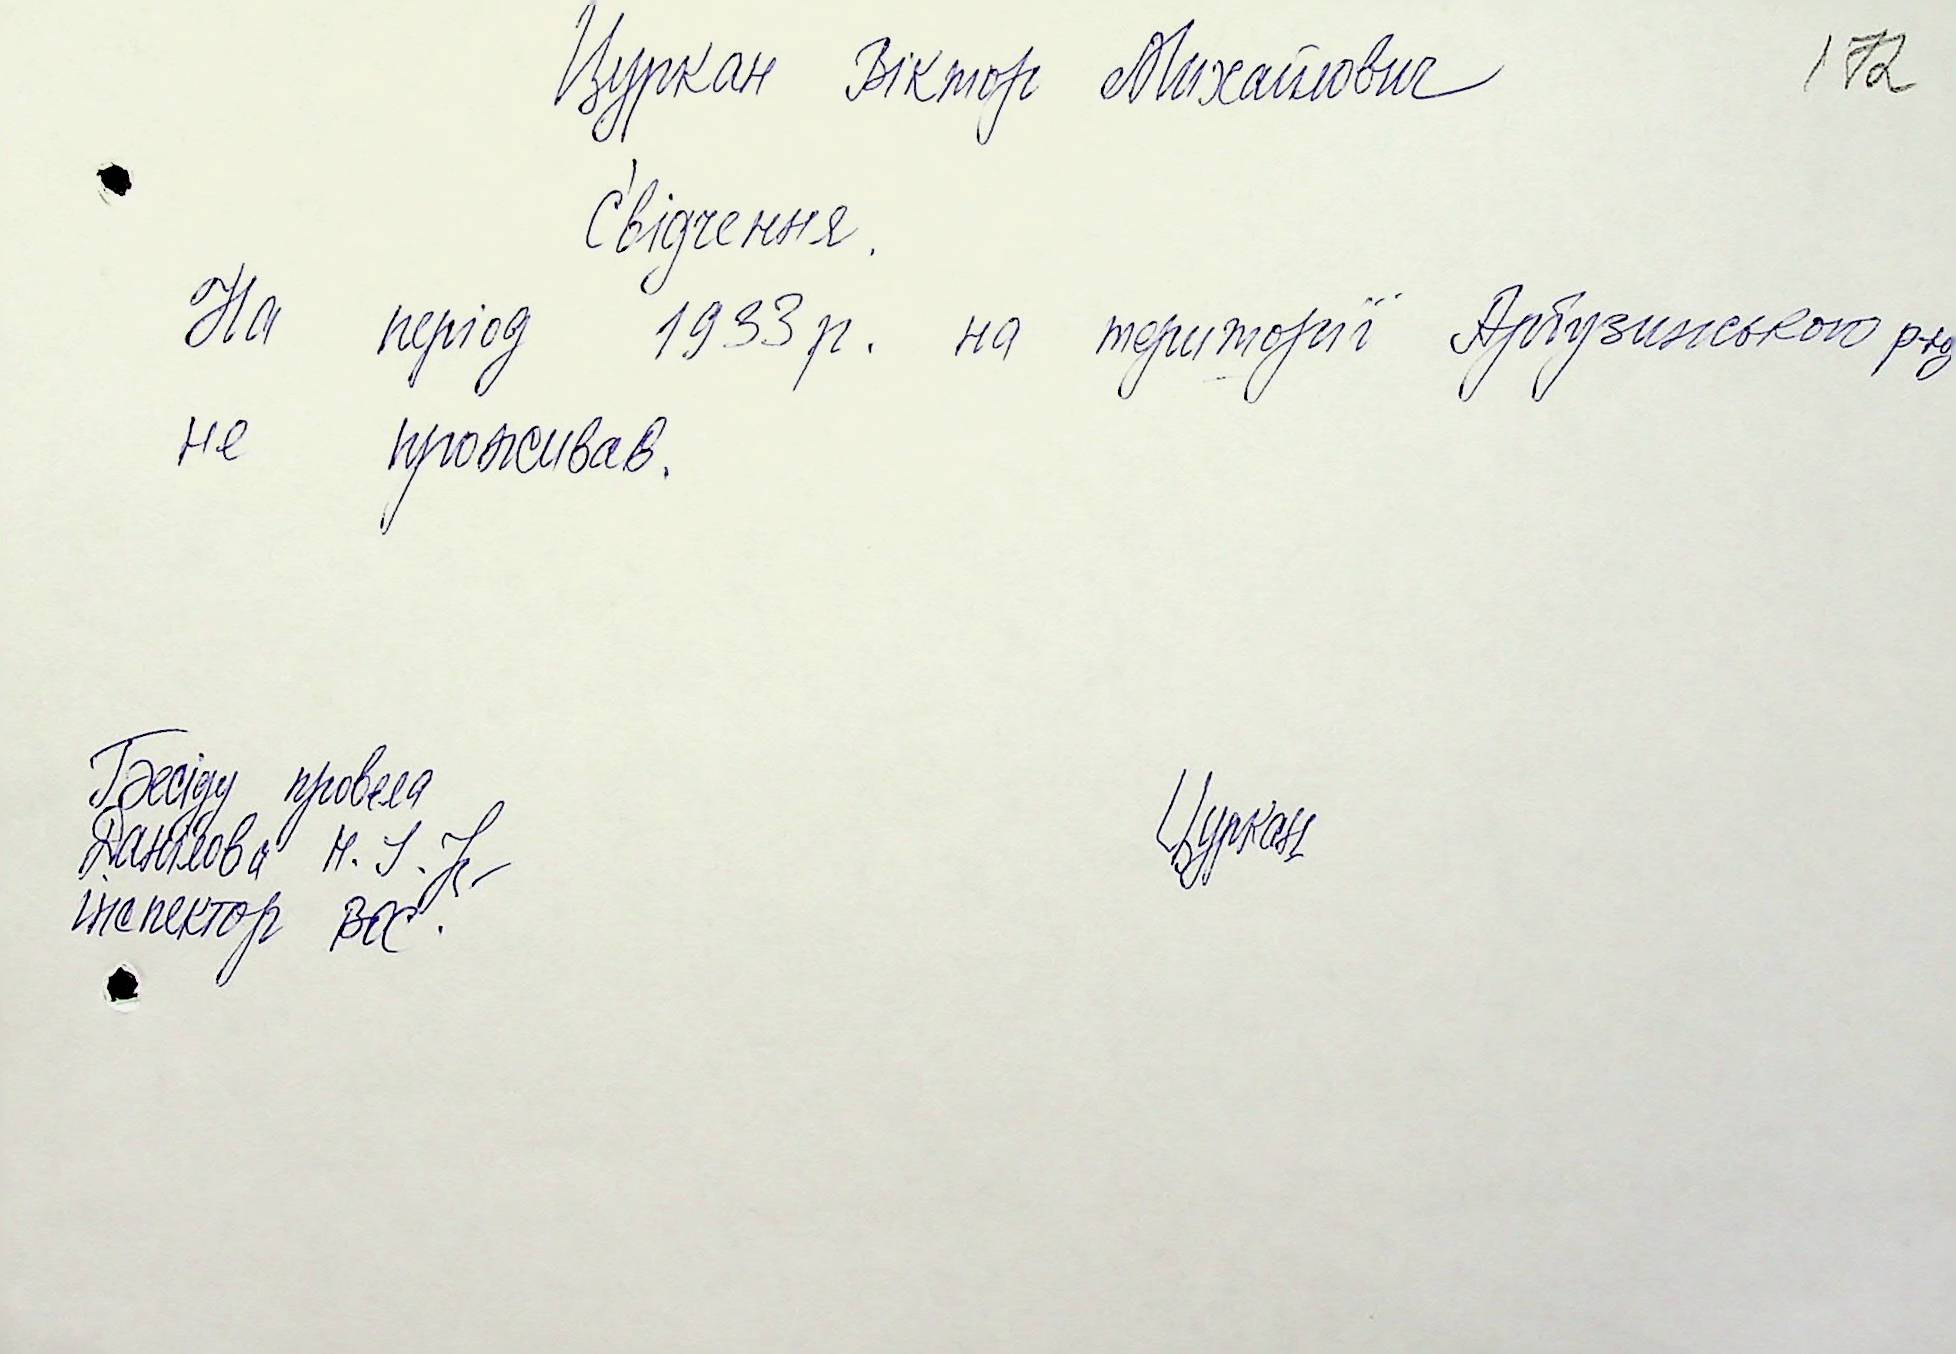 Цуркан Віктор Михайлович 172
Свідчення.
На період 1933 р. на території Арбузинського р-ну
не проживав.
Бесіду провела
Данілова Н. І.
інспектор
Цуркан